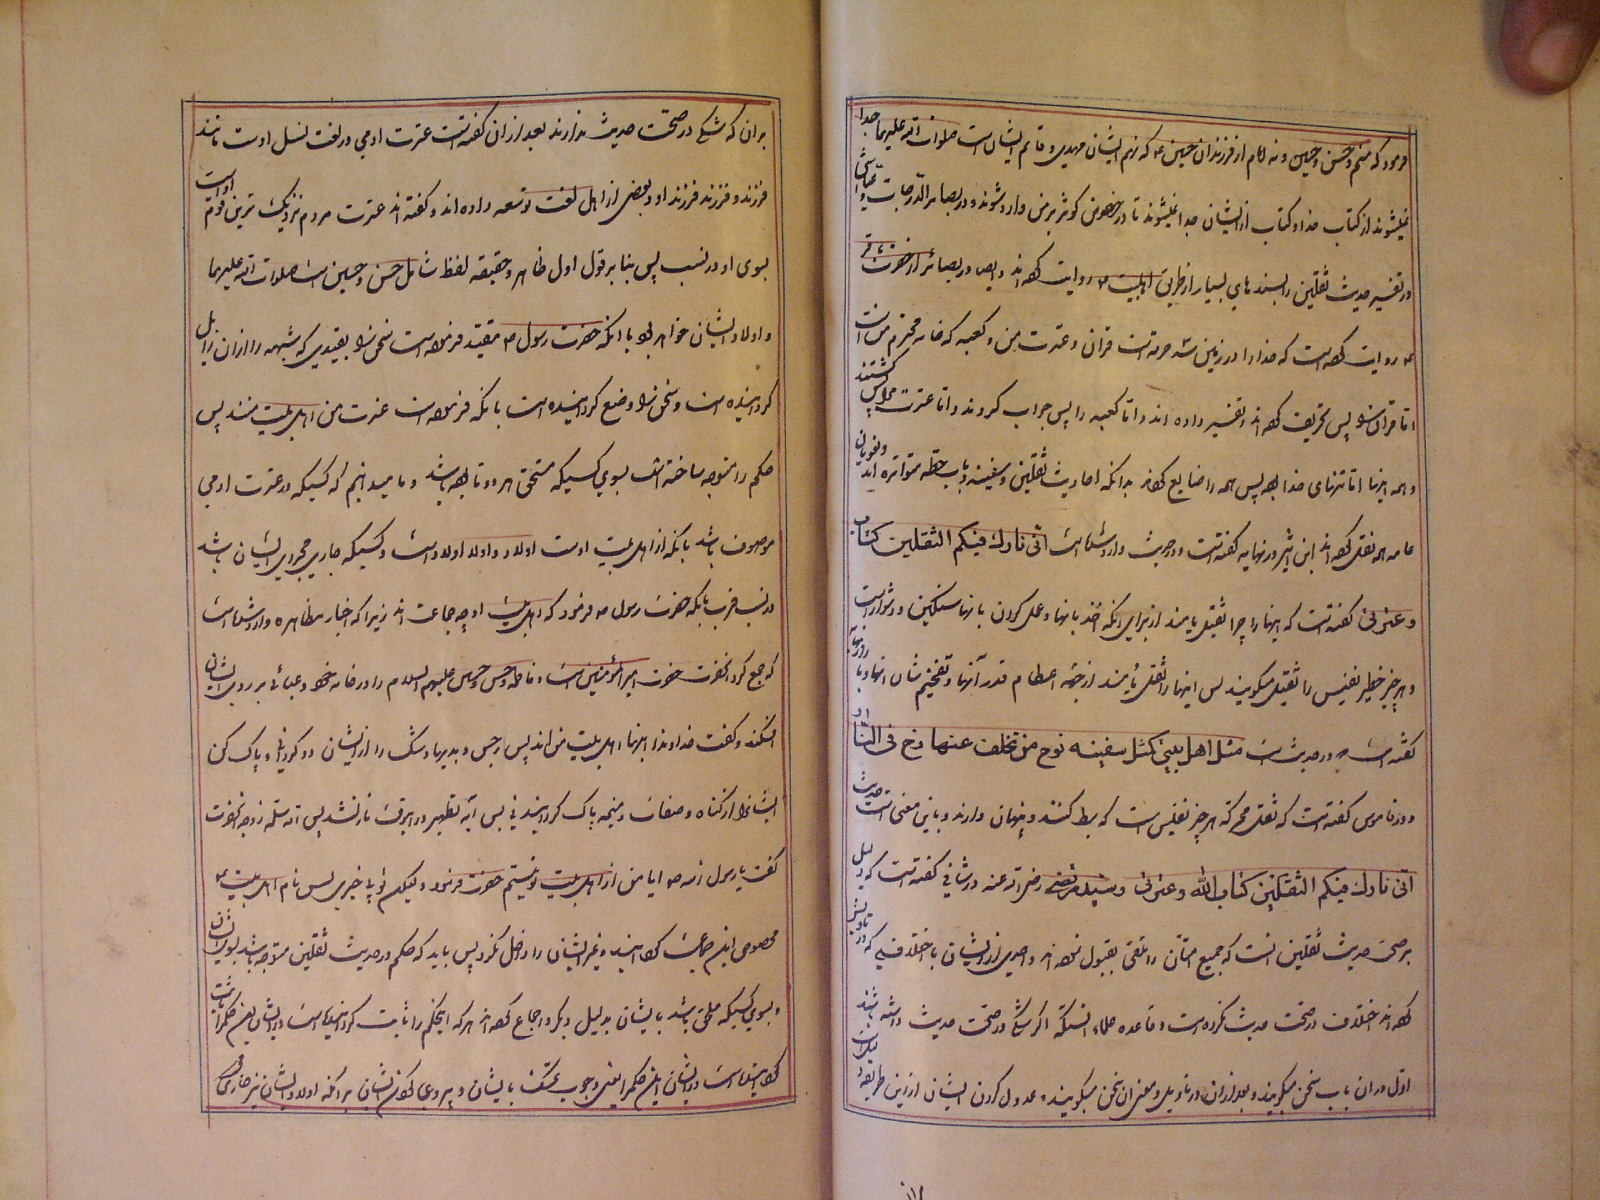 فرمود که منم و حسن و حسین و نه امام از فرزندان حسین ع که نهم ایشان مهدی و قائم ایشان است صلوات الله علیهما جدا
نمیشوند از کتاب خدا و کتاب از ایشان جدا نمیشوند تا در حوض کوثر بر من وارد شوند و در بصائر الدرجات و عیاشی
در تفسیر حدیث ثقلین را بسندهای بسیار از طریق اهلبیت ع روایت کرده اند و ایضا در بصائر از حضرت باقر
ع روایت کرده است که خدا را در زمین سه حرمت است قرآن و عترت من و کعبه که خانه محترم من است
اما قرآن را پس تحریف کرده اند و تغییر داده اند و اما کعبه را پس خراب کردند و اما عترت مرا پس کشتند
و همه اینها امانتهای خدا بود پس همه را ضایع کردند بدانکه احادیث ثقلین و سفینه و باب حطه متواتره اند
عامه همه نقل کرده اند ابن اثیر در نهایه گفته است و در حدیث وارد شده است انی تارك فیکم الثقلین کتاب
و عترتی گفته است که اینها را چرا ثقیل نامند از برای آنکه اخذ بانها و عمل کردن بانها سنگین و دشوار است
و هر چیز خطیر نفیس را ثقیل میگویند پس اینها را ثقل نامند از جهة اعظام قدر آنها و تفخیم شان آنها و
گفته است و در حدیث است مثل اهل بیتی کمثل سفینه نوح من تخلف عنها زخ فی النار
و در قاموس گفته است که ثقل محرکه هر چیز نفیس است که ضبط کنند و پنهان دارند و باین معنی است حدیث
انی تارك فیکم الثقلین کتاب الله وعترتی و سید مرتضی رضی الله عنه در شافی گفته است که دلیل
بر صحت حدیث ثقلین انست که جمیع امت آن را تلقی بقبول نموده اند و احدی از ایشان با اختلافی که در تاویلش
کرده اند اختلاف در صحت حدیث نکرده است و قاعده علماء انستکه اگر شکی در صحت حدیث داشته باشند
اول در آن باب سخن میگویند و بعد از آن در تاویل و معنی ان سخن میگویند و عدول کردن ایشان از این طریقه
بر ان که شکی در صحت حدیث ندارند بعد از ان گفته است عترت ادمی در لغت نسل اوست مانند
فرزند و فرزند فرزند او و بعضی از اهل لغت توسعه داده اند و گفته اند عترت مردم نزدیک ترین قوم اوست
بسوی او در نسب پس بنا بر قول اول ظاهر و حقیقه لفظ شامل حسن و حسین است صلوات الله علیهما
و اولاد ایشان خواهد بود با انکه حضرت رسول ص مقید فرموده است سخن را بقیدی که شبهه را از ان زایل
گردانیده است و سخن را واضح گردانیده است بانکه فرموده است عترت من اهل بیت منند پس
حکم را متوجه ساخته است بسوی کسیکه مستحق هر دو نام بوده باشد و ما میدانیم که کسیکه در عترت ادمی
موصوف باشد بانکه از اهل بیت اوست اولاد و اولاد اولاد است و کسیکه جاری مجرای ایشان باشد
در نسب قریب بانکه حضرت رسول ص فرمود که اهل بیت او چه جماعت اند زیرا که اخبار متظاهره وارد شده است
که جمع کرد انحضرت حضرت امیر المؤمنین و فاطمه و حسن و حسین علیهم السلام را در خانه خود و عبائی بر روی ایشان
افکند و گفت خداوندا اینها اهل بیت من اند پس رجس و بدیها و شک را از ایشان دور گردان و پاک کن
ایشانرا از گناه و صفات ذمیمه پاک گردانیدنی پس آیه تطهیر در انوقت نازل شد پس ام سلمه زوجه انحضرت
گفت یا رسول الله ص ایا من از اهل بیت تو نیستم حضرت فرمود و لیکن تو با خیری پس نام اهل بیت
مخصوص این جماعت گردانید و غیر ایشان را داخل نکرد پس باید که حکم در حدیث ثقلین متوجه باشد بسوی ایشان
و بسوی کسیکه ملحق باشد بایشان بدلیل دیگر و اجماع کرده اند هر که اینحکم را ثابت گردانیده است در ایشان یعنی حکم
گردانیده است در ایشان این حکم را یعنی وجوب تمسک بایشان و پیروی کردن ایشان بر آنکه اولاد ایشان نیز جاری